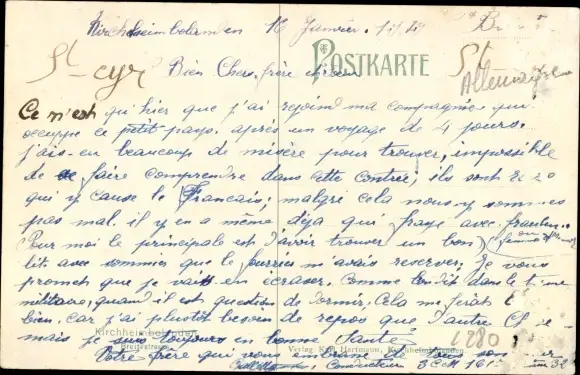 Kirchheimbolanden 16 Janvier
POSTKARTE
St-cyr
Bien Chers frère et sœur
Allemagne
Ce n'est qu'hier que j'ai rejoind ma compagnie qui
occuppe ce petit pays. après un voyage de 4 jours.
j'ais eu beaucoup de misère pour trouver, impossible
de se faire comprendre dans cette contrée, ils sont
qui y cause le Français, malgré cela nous y sommes
pas mal. il y en a même déja qui fraye avec
Pour moi le principale est d'avoir trouver un bon
lit. avec sommier que le fourrier m'avais reserver. Je vous
promet que je vais en écraser. Comme l'on dit dans le
militaire, quand il est question de dormir. Cela me ferais
bien. car j'ai plutôt besoin de repos que d'autre
mais je suis toujours en bonne Santé
Kirchheimbolanden
Breitestrasse
Verlag Hartmann, Kirchheimbolanden
1280
Votre frère qui vous embrasse de tous son
Conducteur